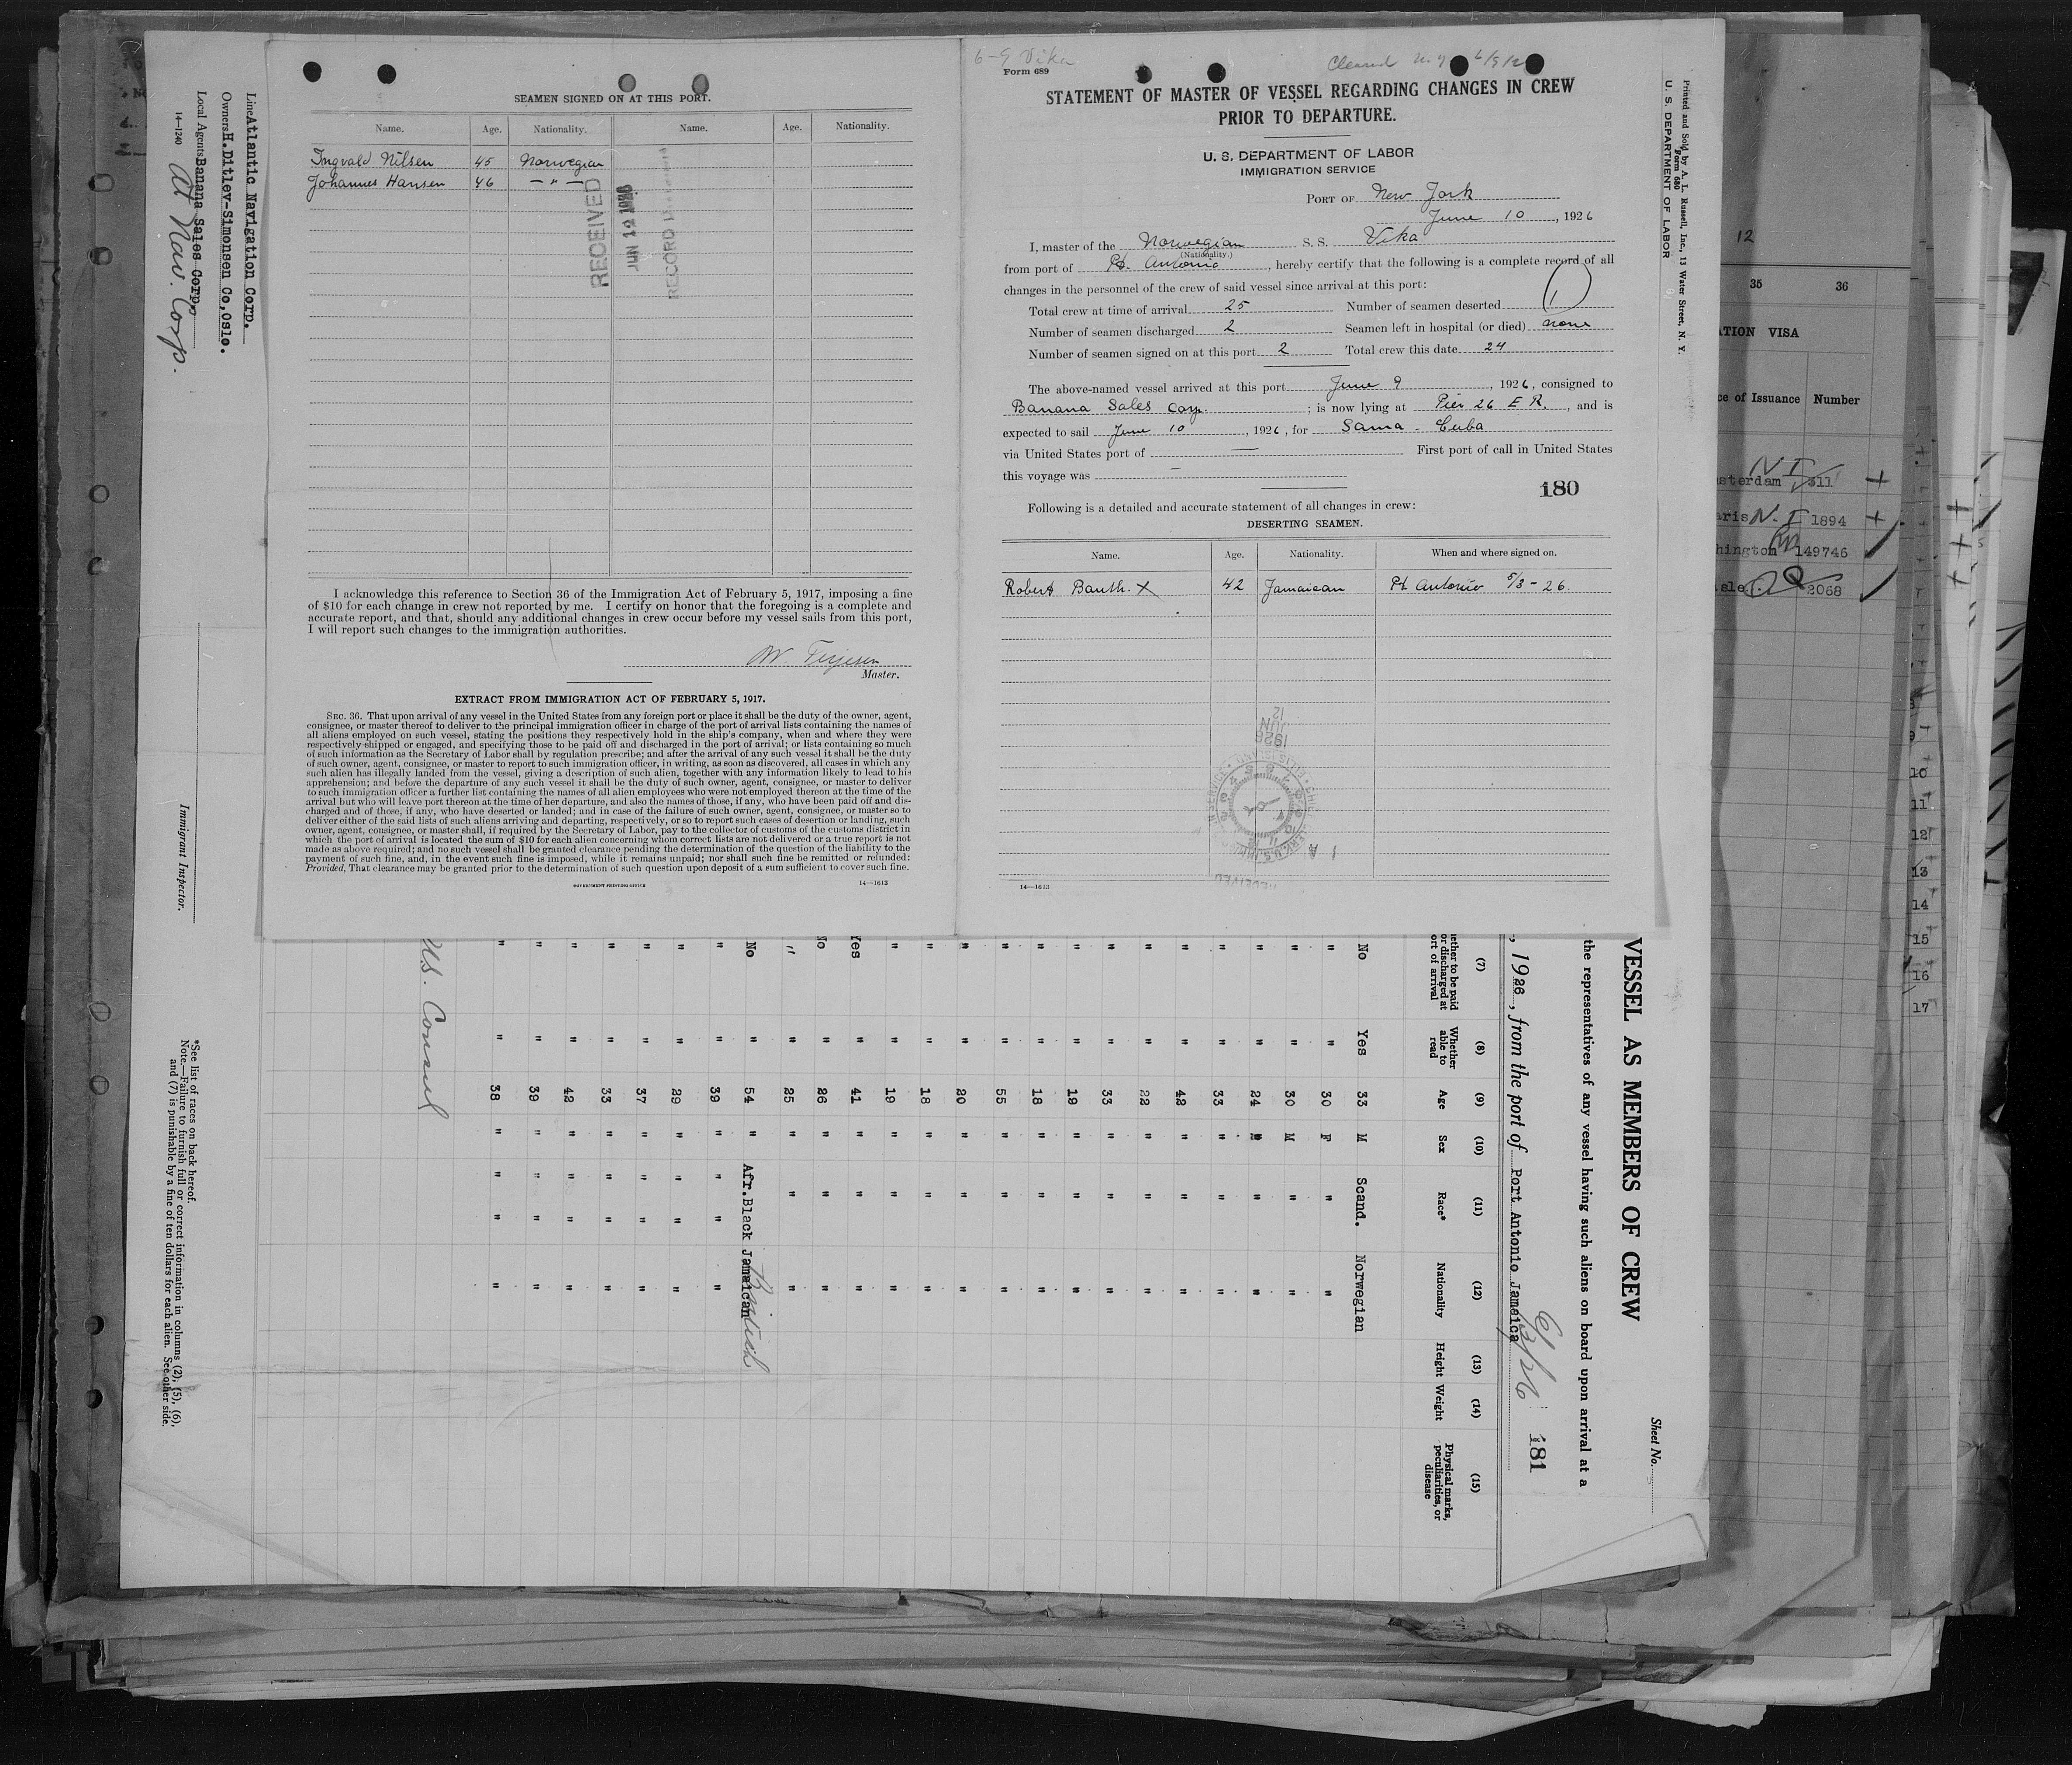 SEAMEN SIGNED ON AT THIS PORT.
Name. Age. Nationality. Name. Age. Nationality.
Ingvald Nilsen 45 Norwegian
Johannes Hansen 46 — " —
RECEIVED
JUN 12 1926
RECORD
I acknowledge this reference to Section 36 of the Immigration Act of February 5, 1917, imposing a fine
of $10 for each change in crew not reported by me. I certify on honor that the foregoing is a complete and
accurate report, and that, should any additional changes in crew occur before my vessel sails from this port,
I will report such changes to the immigration authorities.
Master.
EXTRACT FROM IMMIGRATION ACT OF FEBRUARY 5, 1917.
SEC. 36. That upon arrival of any vessel in the United States from any foreign port or place it shall be the duty of the owner, agent,
consignee, or master thereof to deliver to the principal immigration officer in charge of the port of arrival lists containing the names of
all aliens employed on such vessel, stating the positions they respectively hold in the ship's company, when and where they were
respectively shipped or engaged, and specifying those to be paid off and discharged in the port of arrival; or lists containing so much
of such information as the Secretary of Labor shall by regulation prescribe; and after the arrival of any such vessel it shall be the duty
of such owner, agent, consignee, or master to report to such immigration officer, in writing, as soon as discovered, all cases in which any
such alien has illegally landed from the vessel, giving a description of such alien, together with any information likely to lead to his
apprehension; and before the departure of any such vessel it shall be the duty of such owner, agent, consignee, or master to deliver
to such immigration officer a further list containing the names of all alien employees who were not employed thereon at the time of the
arrival but who will leave port thereon at the time of her departure, and also the names of those, if any, who have been paid off and dis-
charged and of those, if any, who have deserted or landed; and in case of the failure of such owner, agent, consignee, or master so to
deliver either of the said lists of such aliens arriving and departing, respectively, or so to report such cases of desertion or landing, such
owner, agent, consignee, or master shall, if required by the Secretary of Labor, pay to the collector of customs of the customs district in
which the port of arrival is located the sum of $10 for each alien concerning whom correct lists are not delivered or a true report is not
made as above required; and no such vessel shall be granted clearance pending the determination of the question of the liability to the
payment of such fine, and, in the event such fine is imposed, while it remains unpaid; nor shall such fine be remitted or refunded:
Provided, That clearance may be granted prior to the determination of such question upon deposit of a sum sufficient to cover such fine.
GOVERNMENT PRINTING OFFICE 14—1613
6-9 Vika
Form 689
Cleared N.Y.
STATEMENT OF MASTER OF VESSEL REGARDING CHANGES IN CREW
PRIOR TO DEPARTURE.
U. S. DEPARTMENT OF LABOR
IMMIGRATION SERVICE
PORT OF New York
June 10, 1926
I, master of the Norwegian S. S. Vika
(Nationality.)
from port of Pt. Antonio, hereby certify that the following is a complete record of all
changes in the personnel of the crew of said vessel since arrival at this port:
Total crew at time of arrival 25 Number of seamen deserted 1
Number of seamen discharged 2 Seamen left in hospital (or died) none
Number of seamen signed on at this port 2 Total crew this date 24
The above-named vessel arrived at this port June 9, 1926, consigned to
Banana Sales Corp. ; is now lying at Pier 26 E R., and is
expected to sail June 10, 1926, for Sama - Cuba
via United States port of — First port of call in United States
this voyage was —
180
Following is a detailed and accurate statement of all changes in crew:
DESERTING SEAMEN.
Name. Age. Nationality. When and where signed on.
Robert Banth. X 42 Jamaican Pt Antonio 5/3-26.
12
JUN
1926
RECEIVED
14—1613
Printed and Sold by A. L. Russell, Inc., 13 Water Street, N. Y.
Form 680
U. S. DEPARTMENT OF LABOR
Line Atlantic Navigation Corp.
Owners H. Ditlev-Simonsen Co, Oslo.
Local Agents Banana Sales Corp.
At Nav. Corp.
14—1240
Immigrant Inspector.
*See list of races on back hereof.
Note.—Failure to furnish full or correct information in columns (2), (5), (6),
and (7) is punishable by a fine of ten dollars for each alien. See other side.
Sheet No.
VESSEL AS MEMBERS OF CREW
the representatives of any vessel having such aliens on board upon arrival at a
, 1926, from the port of Port Antonio Jamaica
181
(7) (8) (9) (10) (11) (12) (13) (14) (15)
Whether able to read
Age
Sex
Race*
Nationality
Height
Weight
Physical marks, peculiarities, or disease
No Yes 33 M Scand. Norwegian
" " 30 F " "
" " 30 M " "
" " 24 " " "
" " 33 " " "
" " 42 " " "
" " 22 " " "
" " 33 " " "
" " 19 " " "
" " 18 " " "
" " 55 " " "
" " 20 " " "
" " 18 " " "
" " 19 " " "
Yes " 41 " " "
No " 26 " " "
" " 25 " " "
No " 54 " Afr. Black Jamaican British
" " 39 " " " "
" " 29 " " " "
" " 37 " " " "
" " 33 " " " "
" " 42 " " " "
" " 39 " " " "
" " 38 " " " "
U.S. Consul
12
35 36
VISA
of Issuance Number
N I
1894
149746
2068
10
11
12
13
14
15
16
17